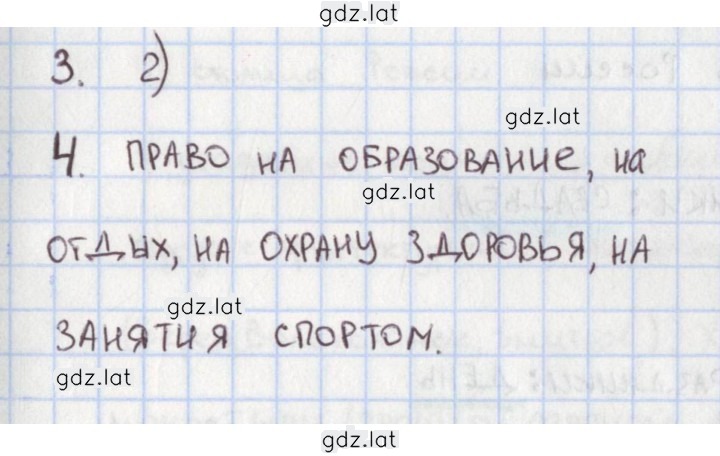 gdz.lat
3. г)
gdz.lat
4. ПРАВО НА ОБРАЗОВАНИЕ, НА
gdz.lat
ОТДЫХ, НА ОХРАНУ ЗДОРОВЬЯ, НА
gdz.lat
ЗАНЯТИЯ СПОРТОМ.
gdz.lat
gdz.lat